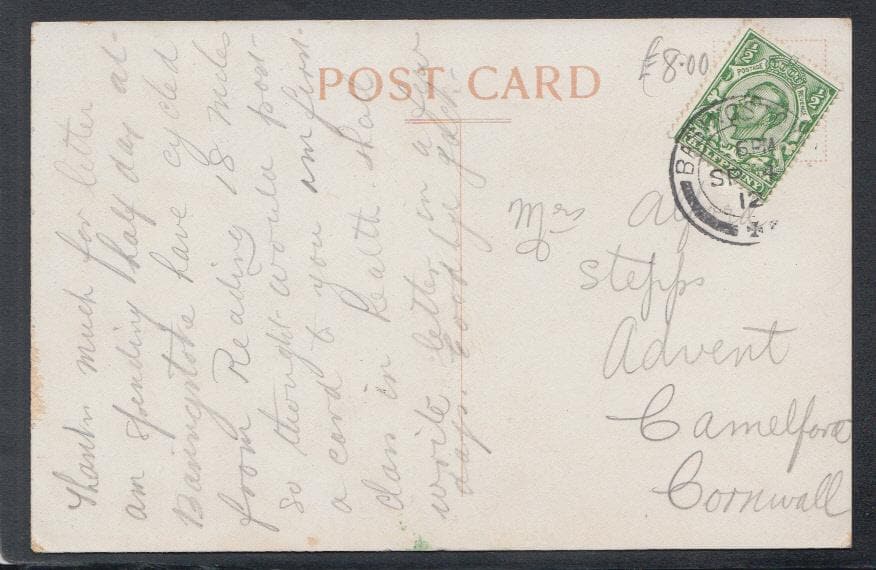 POST CARD
£8.00
½ ½
POSTAGE REVENUE
HALFPENNY
BA
6 PM
SP 4
12
Mrs
Stepps
Advent
Camelford
Cornwall
Thanks much for letter
am spending half day at-
Basingstoke have cycled
from Reading 18 miles
so thought would post-
a card to you am first-
class in health. shall
write letter in a few
days. Good bye